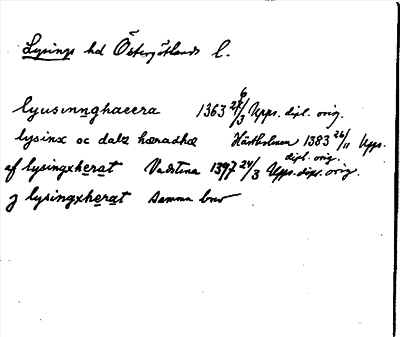 Lysings hd Östergötlands l.
lyusinnghaeera 1363 27/3 Upps. dipl. orig.
lysinx oc dalz hæradhæ Hästholmen 1383 26/11 Upps. dipl. orig.
af lysingxherat Vadstena 1397 24/3 Upps. dipl. orig.
j lysingxherat samma brev